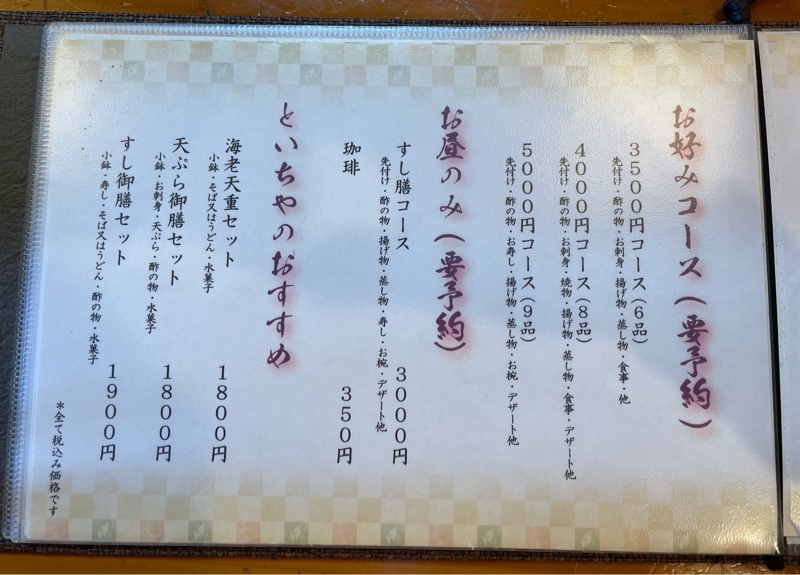 お好みコース(要予約)
3500円コース(6品)
先付け・酢の物・お刺身・揚げ物・蒸し物・食事・他
4000円コース(8品)
先付け・酢の物・お刺身・焼物・揚げ物・蒸し物・食事・デザート他
5000円コース(9品)
先付け・酢の物・お寿し・揚げ物・蒸し物・お椀・デザート他
お昼のみ(要予約)
すし膳コース 3000円
先付け・酢の物・揚げ物・蒸し物・寿し・お椀・デザート他
珈琲 350円
といちやのおすすめ
海老天重セット 1800円
小鉢・そば又はうどん・水菓子
天ぷら御膳セット 1800円
小鉢・お刺身・天ぷら・酢の物・水菓子
すし御膳セット 1900円
小鉢・寿し・そば又はうどん・酢の物・水菓子
*全て税込み価格です